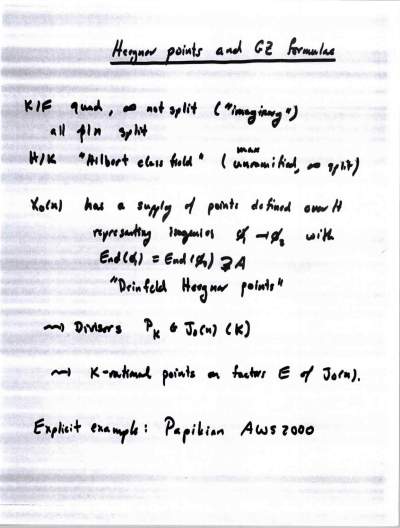 Heegner points and GZ formulas
K/F quad, ∞ not split ("imaginary")
all p|n split
H/K "Hilbert class field" (max unramified, ∞ split)
X₀(n) has a supply of points defined over H
representing isogenies φ₁ → φ₂ with
End(φ₁) = End(φ₂) ⊋ A
"Drinfeld Heegner points"
⇝ Divisors P_K ∈ J₀(n)(K)
⇝ K-rational points on factors E of J₀(n).
Explicit example: Papikian AWS 2000